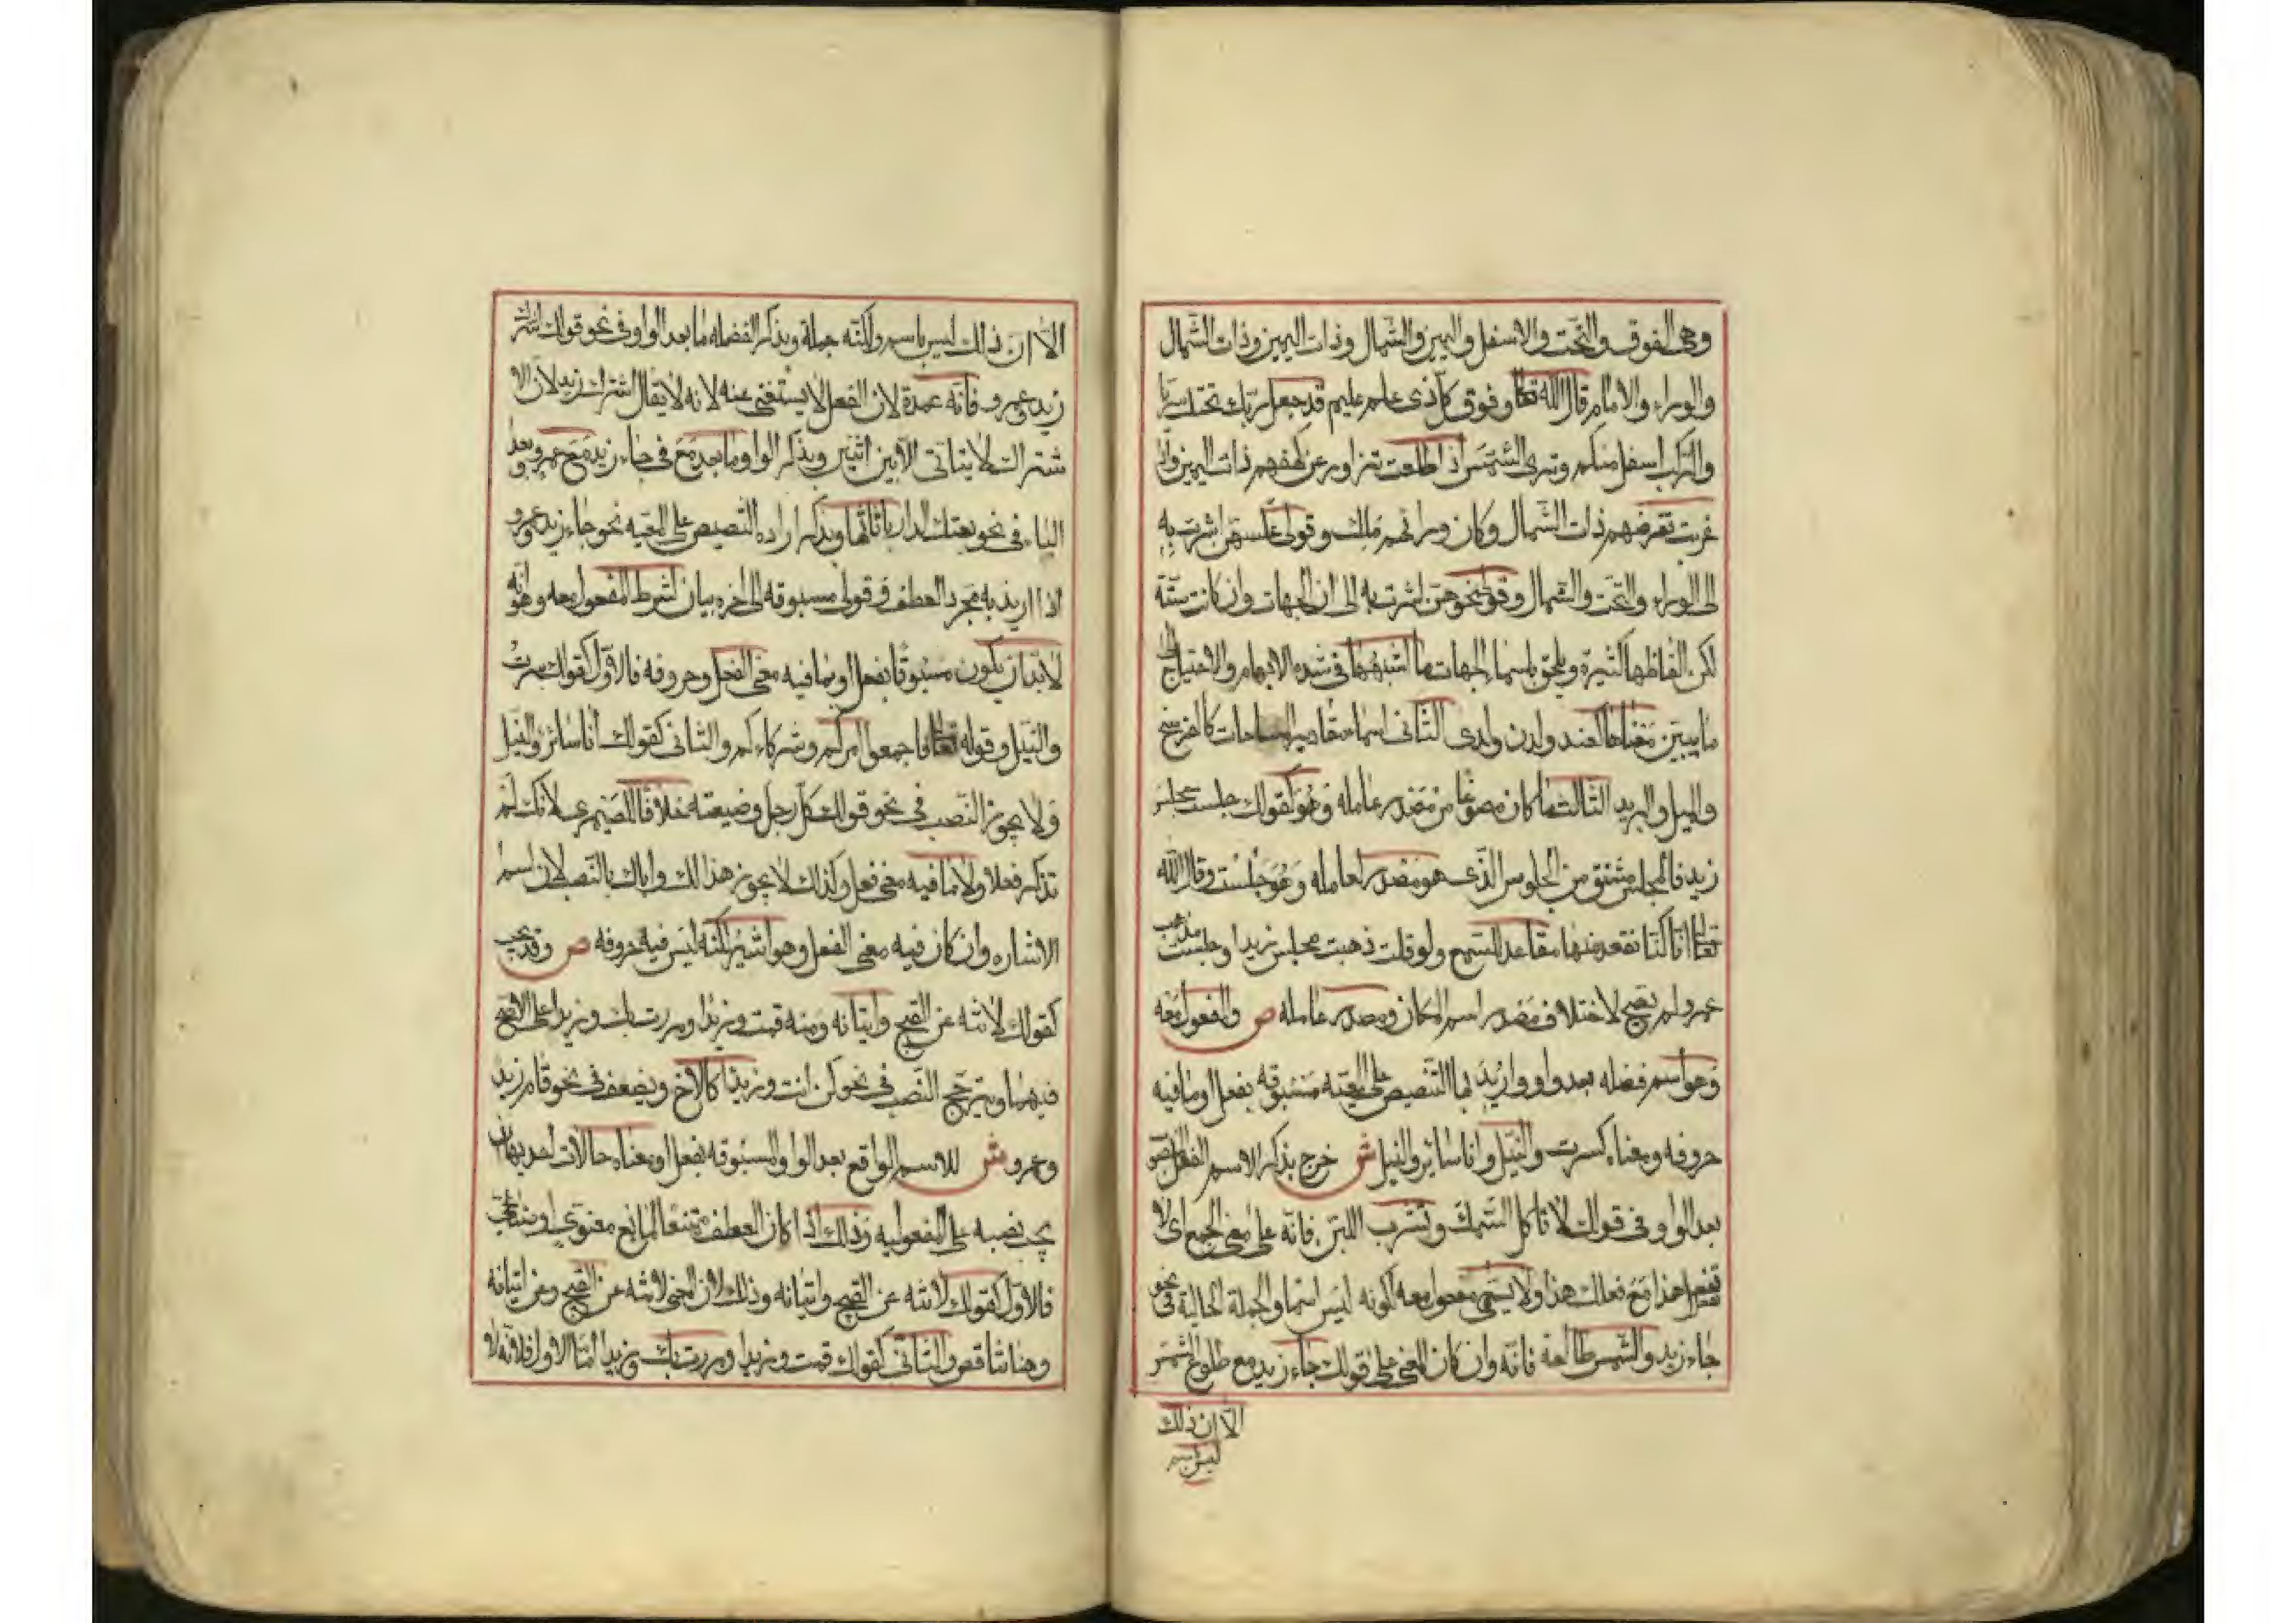 وهى الفوق والتحت والاسفل واليمين والشمال وذات اليمين وذات الشمال
والوراء والامام قال الله تعالى وفوق كل ذى علم عليم قد جعل ربك تحتك سريا
والركب اسفل منكم وترى الشمس اذا طلعت تزاور عن كهفهم ذات اليمين واذا
غربت تقرضهم ذات الشمال وكان وراءهم ملك وقولى عكسهن اشرت به
الى الوراء والتحت والشمال وقولى نحوهن اشرت به الى ان الجهات وان كانت ستة
لكن الفاظها كثيرة ويلحق باسماء الجهات ما اشبهها فى شدة الابهام والاحتياج الى
ما يبين معناها كعند ولدن ولدى الثانى اسماء مقادير المساحات كالفرسخ
والميل والبريد الثالث ما كان مصوغا من مصدر عامله وهو كقولك جلست مجلس
زيد فالمجلس مشتق من الجلوس الذى هو مصدر لعامله وهو جلست وقال الله
تعالى انا كنا نقعد منها مقاعد للسمع ولو قلت ذهبت مجلس زيدا وجلست مذهب
عمرو لم يصح لاختلاف مصدر اسم المكان ومصدر عامله ص والمفعول معه
وهو اسم فضله بعد واو واريد بها التنصيص على المعيه مسبوقه بفعل او ما فيه
حروفه ومعناه كسرت والنيل وانا سائر والنيل ش خرج بذكر الاسم الفعل المنصوب
بعد الواو فى قولك لا تاكل السمك وتشرب اللبن فانه على معنى الجمع اى لا
تفعل هذا مع فعلك هذا ولا يسمى مفعول معه لكونه ليس اسما والجملة الحالية فى نحو
جاء زيد والشمس طالعة فانه وان كان المعنى على قولك جاء زيد مع طلوع الشمس
الا ان ذلك
ليس باسم
الا ان ذلك ليس باسم ولكنه جملة وبذكر الفضله ما بعد الواو فى نحو قولك اشترك
زيد وعمرو فانه عمدة لان الفعل لا يستغنى عنه لانه لا يقال اشترك زيد لان الا
شتراك لا يتاتى الا بين اثنين وبذكر الواو ما بعد مع فى جاء زيد مع عمرو وبعد
الباء فى نحو بعتك الدار باثاثها وبذكر اراده التنصيص على المعيه نحو جاء زيد وعمرو
اذا اريد به مجرد العطف وقولى مسبوقه الى اخره بيان لشرط المفعول معه وهو انه
لا بد ان يكون مسبوقا بفعل او بما فيه معنى الفعل وحروفه فالاول كقولك سرت
والنيل وقوله تعالى فاجمعوا امركم وشركاءكم والثانى كقولك انا سائر والنيل
ولا يجوز النصب فى نحو قولك كل رجل وضيعته خلافا للصيمرى لانك لم
تذكر فعلا ولا ما فيه معنى فعل وكذلك لا يجوز هذا لك واباك بالنصب لان اسم
الاشاره وان كان فيه معنى الفعل وهو اشير لكنه ليس فيه حروفه ص وقد يجب
كقولك لا تنه عن القبيح واتيانه ومنه قمت وزيدا ومررت بك وزيدا على الاصح
فيهما ويترجح النصب فى نحو كن انت وزيدا كالاخ ويضعف فى نحو قام زيد
وعمرو ش للاسم الواقع بعد الواو المسبوقه بفعل او معناه حالات احديها ان
يجب نصبه على المفعوليه وذلك اذا كان العطف ممتنعا لمانع معنوى او صناعى
فالاول كقولك لا تنه عن القبيح واتيانه وذلك لان المعنى لا تنه عن القبيح وعن اتيانه
وهنا تناقض والثانى كقولك قمت وزيدا ومررت بك وزيدا اما الاول فلانه لا